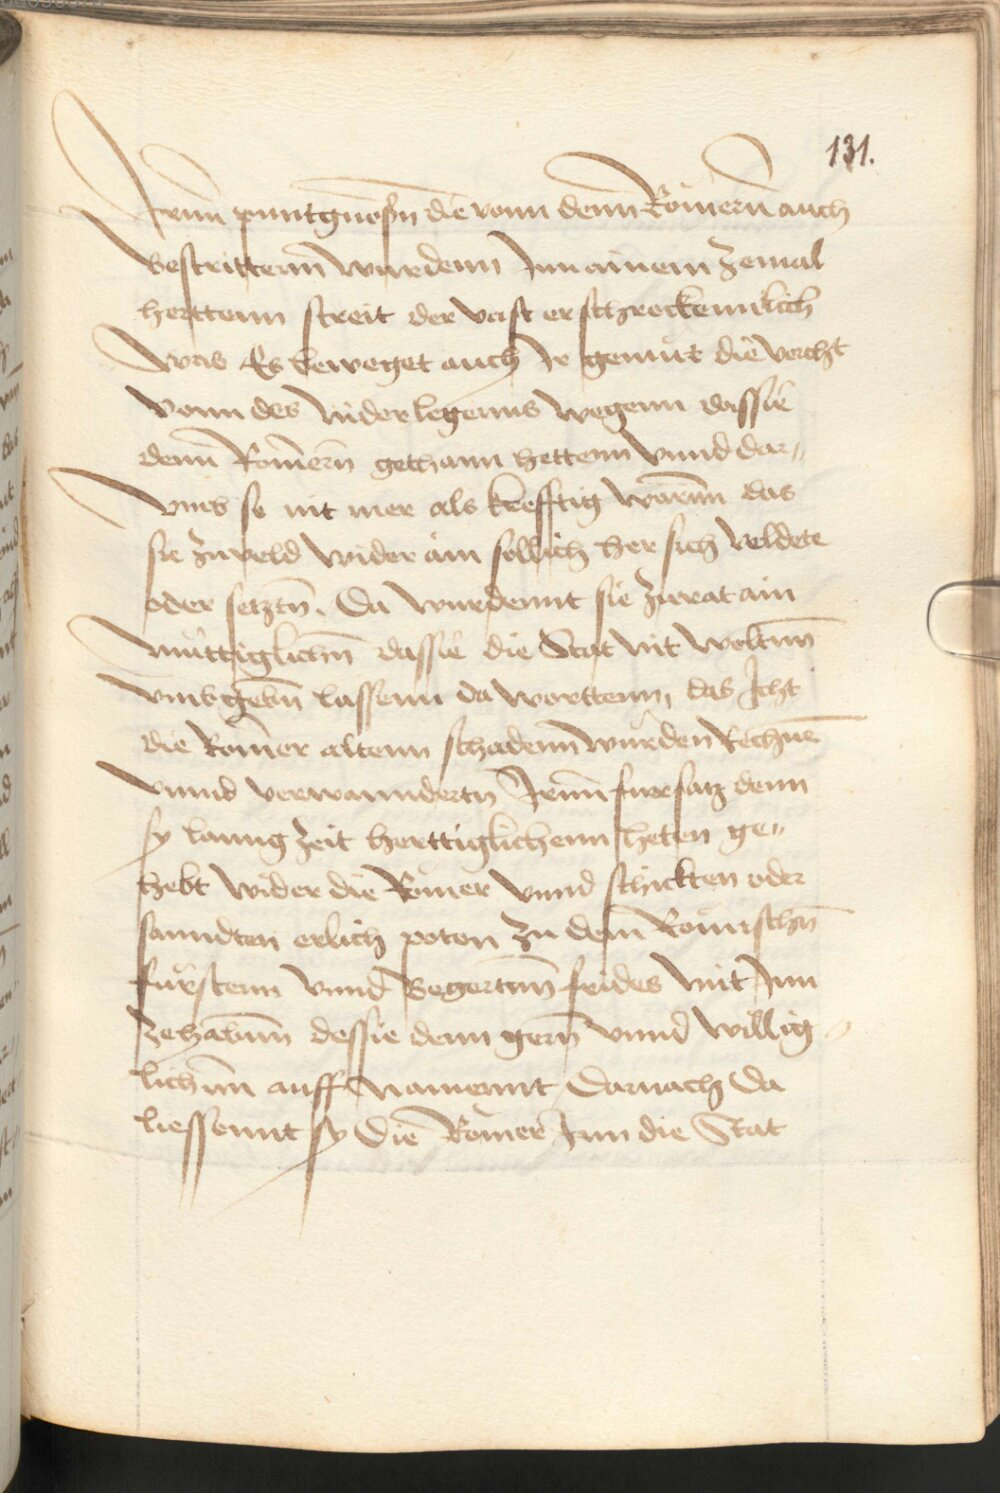 131.
Irnn puntgnossn die vonn denn Römern auch
bestrittenn wurdenn Inn ainem zemal
herttenn streit der vast erschrockennlich
was Es beweget auch Ir gemüt die vorcht
vonn des niderlegenns wegenn dassie
denn Römern gethann hettenn vnnd dar„
vmb se nit mer als krefftig warnn das
sie zu veld wider ain sollich her sich veldete
oder setztn. Da wurdennt sie zu rat ain
müttiglichn dassie die Stat nit woltnn
vmbgebn lassenn da worttenn, das Icht
die Römer altenn schadenn würden Rechnen
vnnd verwanndertn Irnn fursatz denn
sy lanng zeit herttiglichenn heten ge„
hebt wider die Römer vnnd schickten oder
sanndten erlich poten zu dem Römischn
fürstenn vnnd Begertnn frides mit Inn
zehabnn dessie denn gern vnnd willig„
lichnn auff namennt Darnach Da
liessennt sy Die Römer Inn die Stat